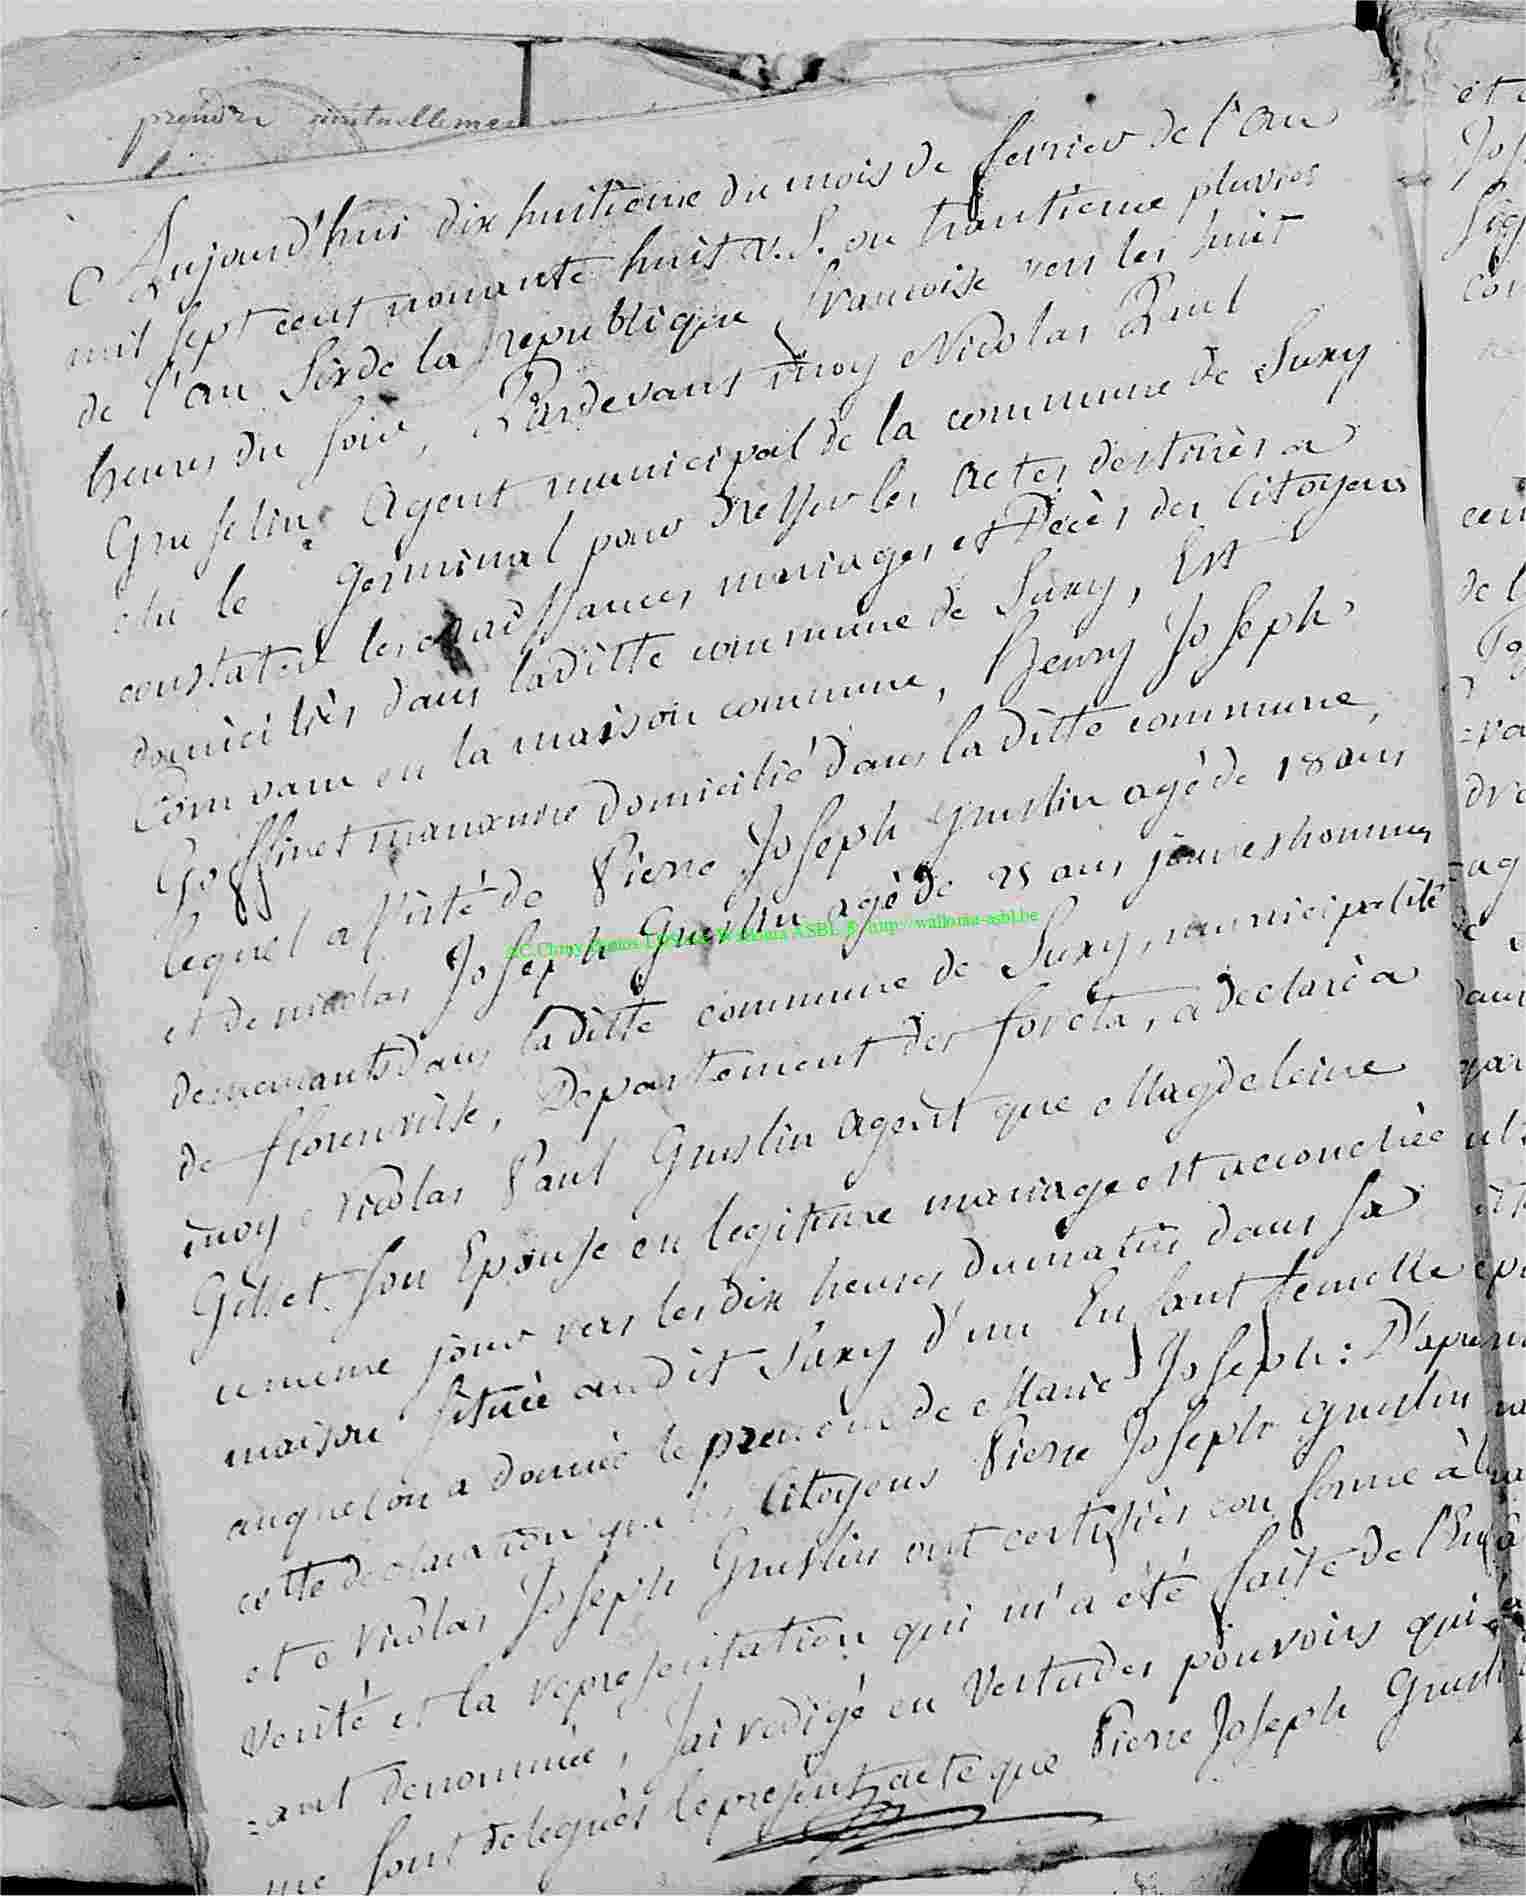 prendre mutuellement
Aujourd'hui dix huitieme du mois de fevrier de l'an
mil sept cent nonante huit v. S. ou trantieme pluvios
de l'an Six de la republique francoise vers les huit
heures du soir, Pardevant moy Nicolas Paul
Gruselin Agent municipal de la commune de Suxy
elu le Germinal pour dresser les actes destinès a
constater les naissances, mariages et Decès des Citoyens
domicilièr dans laditte commune de Suxy, Est
Comparu en la maison commune, Henry Joseph
Goffinet manœuvre domicilié dans laditte commune,
lequel assisté de Pierre Joseph Gruslin agé de 18 ans
et de nicolas Joseph Gruslin agé de 25 ans jeunes hommes
demeurants dans laditte commune de Suxy, municipalité
de florenville, Departement des forets, a declaré a
moy Nicolas Paul Gruslin agent que Magdeleine
Gillet son Epouse en legitime mariage est accouchée
cememe jour vers les dix heures dumatin dans sa
maison située audit Suxy d'un Enfant femelle
auquel on a donnée le prenom de Marie Joseph: D'apres
cette declaration que les Citoyens Pierre Joseph Gruslin
et Nicolas Joseph Gruslin ont certifiés conforme à la
verité et la representation qui m'a été faite de l'Enfa
=ant denommée, J'ai redigé en vertu des pouvoirs qui
me sont deleguès le present acte que Pierre Joseph Gruslin
A.C. Chiny Photos LDS &amp; Wallonia ASBL © http://wallonia-asbl.be